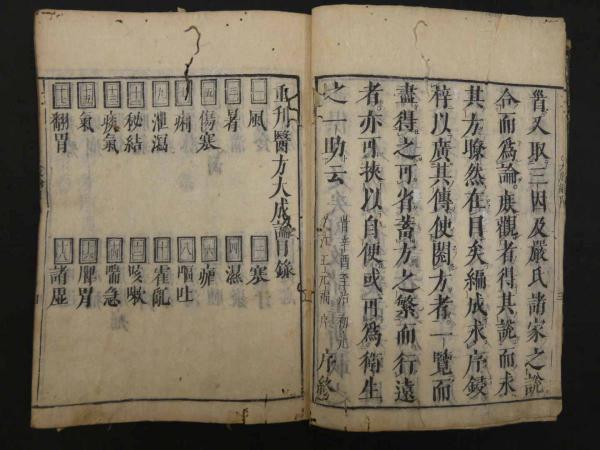 嘗又取三因及嚴氏諸家之說
合而爲論庻觀者得其說而求
其方瞭然在目矣編成求序鋟
梓以廣其傳使閱方者一覽而
盡得之可省蓄方之繁而行遠
者亦可挾以自便或可爲衛生
之一助云
序終
重刊醫方大成論目錄
一風 二寒
三暑 四濕
五傷寒 六瘧
七痢 八嘔吐
九泄瀉 十霍亂
秘結 咳嗽
痰氣 喘急
氣 脾胃
翻胃 諸虛